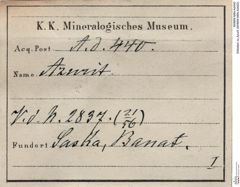 K. K. Mineralogisches Museum.
Acq. Post A. d. 440.
Name Azurit.
V. d. N. 2837. (21/56)
Fundort Saska, Banat.
I